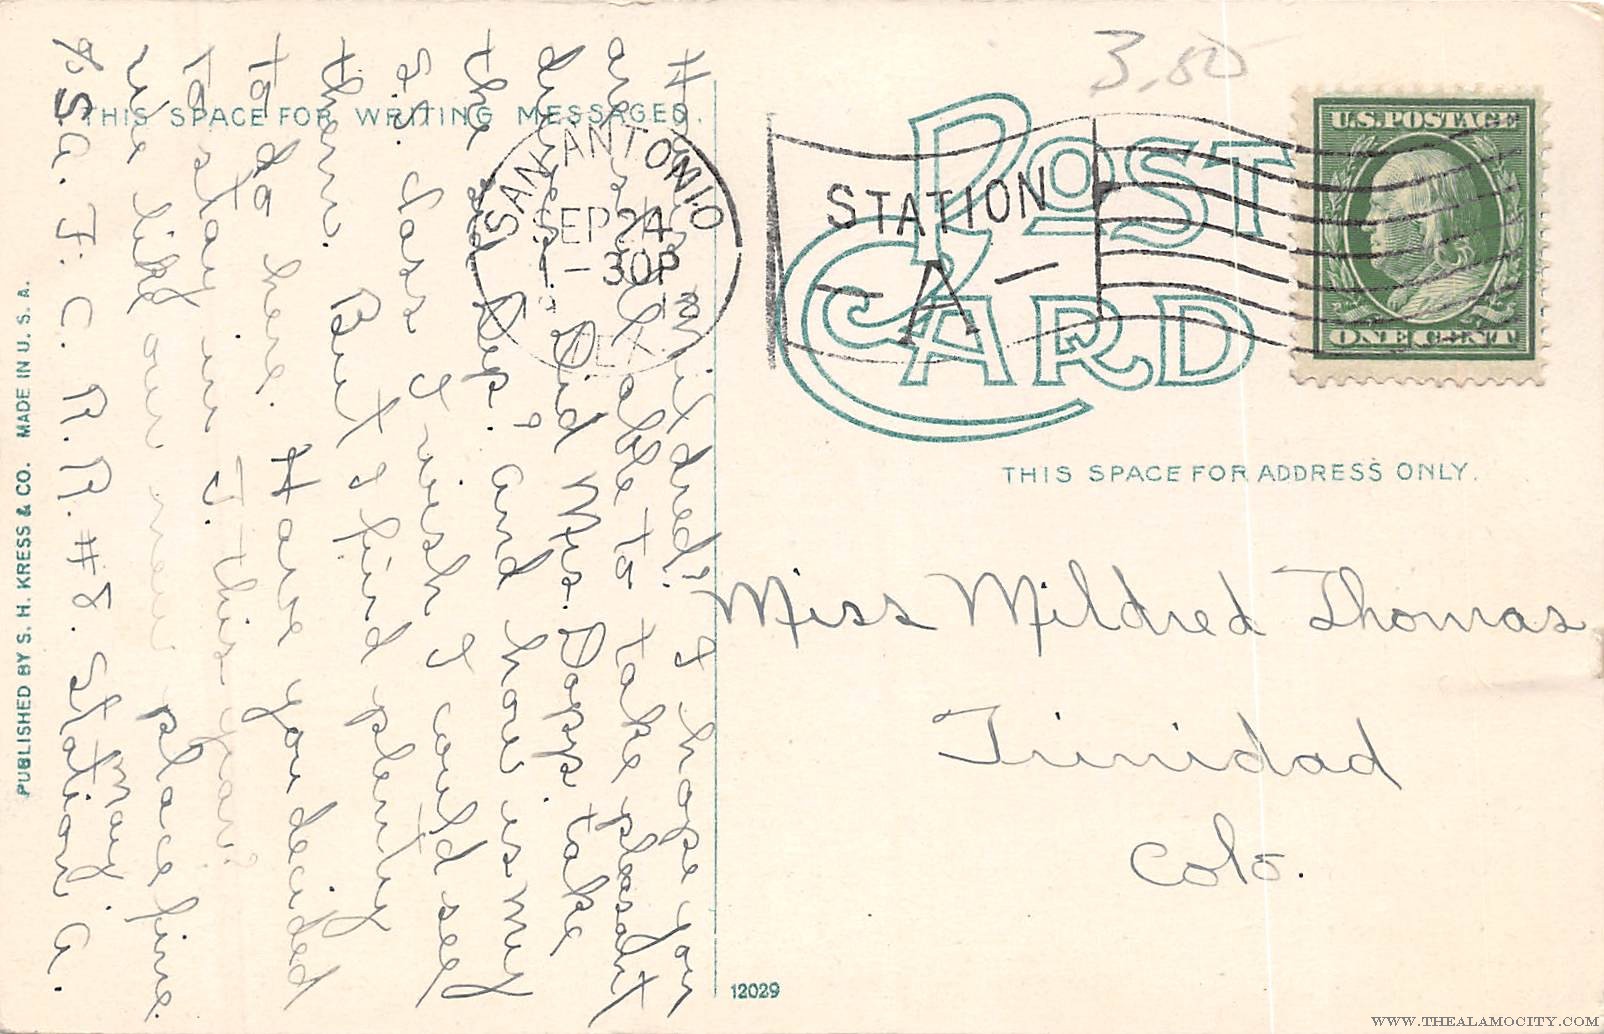 3.50
THIS SPACE FOR WRITING MESSAGES.
POST CARD
THIS SPACE FOR ADDRESS ONLY.
U.S. POSTAGE
ONE CENT
SAN ANTONIO
SEP 24
1-30P
TEX.
STATION
-A-
How Mildred? I hope you
are still able to take pleasant
drives. Did Mrs. Dopp take
the Dep.? And how is my
S.S. class I wish I could see
them. But I find plenty
to do here. Have you decided
to stay in T. this year?
We like our new place fine.
May
% S.A.F.C. R.R. #8. Station A.
Miss Mildred Thomas
Trinidad
Colo.
PUBLISHED BY S. H. KRESS & CO. MADE IN U. S. A.
12029
WWW.THEALAMOCITY.COM